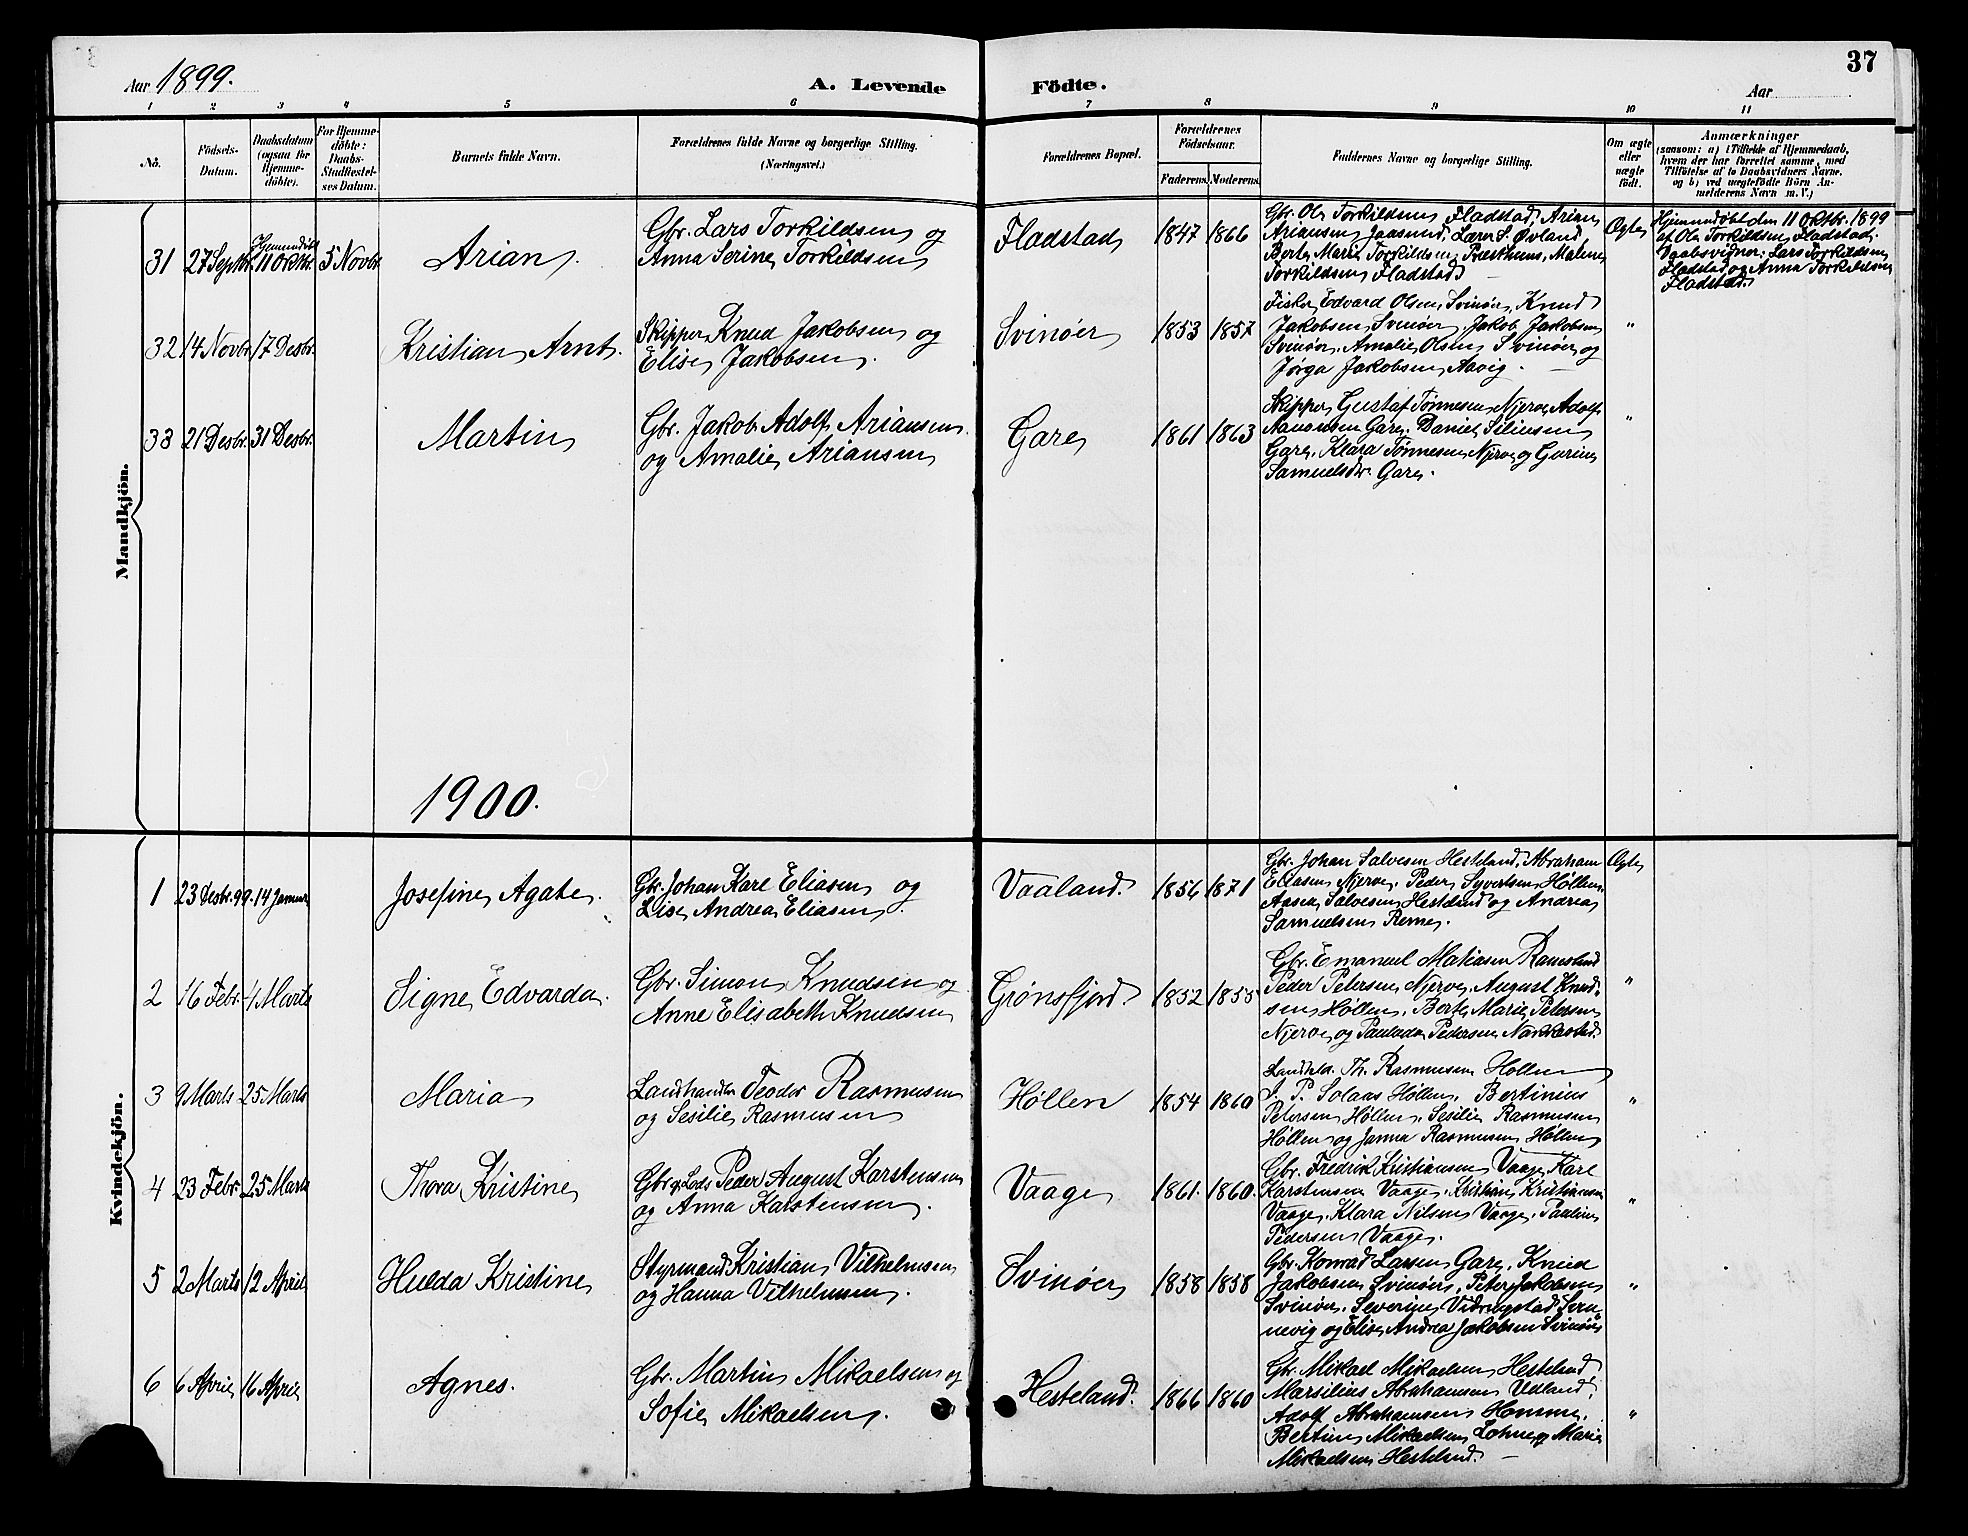 37
Aar 1899.
A. Levende Födte.
Aar
1 2 3 4 5 6 7 8 9 10 11
No.
Födsels-
Datum.
Daabsdatum
(ogsaa for
Hjemme-
döbte).
For Hjemme-
döbte:
Daabs-
Stadfæstel-
ses Datum.
Barnets fulde Navn.
Forældrenes fulde Navne og borgerlige Stilling.
(Næringsvei.)
Forældrenes Bopæl.
Forældrenes
Födselsaar.
Faderens. Moderens.
Faddernes Navne og borgerlige Stilling.
Om ægte
eller
uægte
födt.
Anmærkninger
(saasom: a) i Tilfælde af Hjemmedaab,
hvem der har forrettet samme, med
Tilföielse af to Daabsvidners Navne,
og b) ved uægtefödte Börn An-
melderens Navn m. V.)
Mandkjön.
31 27 Septbr. Hjemmedøbt 11 Oktbr. 5 Novbr. Arian.
Gbr. Lars Torkildsen og
Anna Serine Torkildsen
Fladstad 1847 1866
Gbr. Ole Torkildsen Fladstad, Arian
Ariansen Jaasund, Lars S. Øvland,
Berte Marie Torkildsen Præsthuus, Malene
Torkildsen Fladstad
Ægte
Hjemmedøbt den 11 Oktbr. 1899
af Ole Torkildsen Fladstad.
Daabsvidner: Lars Torkildsen
Fladstad og Anna Torkildsen
Fladstad.
32 14 Novbr. 17 Desbr. Kristian Arnt.
Skipper Knud Jakobsen og
Elise Jakobsen.
Svinøer 1853 1857
Fisker Edvard Olsen Svinøer, Knud
Jakobsen Svinøer, Jakob Jakobsen
Svinøer, Amalie Olsen Svinøer og
Jørga Jakobsen Aavig.
"
33 21 Desbr. 31 Desbr. Martin
Gbr. Jakob Adolf Ariansen
og Amalie Ariansen
Gare 1861 1863
Skipper Gustaf Tønnesen Njerve, Adolf
Aanonsen Gare, Daniel Siliusen
Gare, Klara Tønnesen Njerve og Gurine
Samuelsdr. Gare.
"
1900.
Kvindekjön.
1 23 Desbr. 99. 14 Januar Josefine Agate.
Gbr. Johan Karl Eliasen og
Lise Andrea Eliasen.
Vaaland. 1856 1871
Gbr. Johan Salvesen Hesteland, Abraham
Eliasen Njerve, Peder Syvertsen Høllen,
Aasne Salvesen Hesteland og Andrea
Samuelsen Reme.
Ægte
2 16 Febr. 4 Marts Signe Edvarda.
Gbr. Simon Knudsen og
Anne Elisabeth Knudsen
Grønsfjord. 1852 1855
Gbr. Emanuel Matiasen Ramsland
Peder Petersen Njerve, August Knud-
sen Høllen, Berte Marie Petersen
Njerve og Paulada Pedersen
"
3 9 Marts 25 Marts Maria
Landhandler Teodor Rasmussen
og Sesilie Rasmussen
Høllen 1854 1860
Landhdl. Th. Rasmussen Høllen
J. P. Solaas Høllen, Bertinius
Petersen Høllen, Sesilie Rasmussen
Høllen og Janna Rasmussen Høllen
"
4 23 Febr. 25 Marts Thora Kristine
Gbr. og Lods Peder August Karstensen
og Anna Karstensen.
Vaage 1861. 1860.
Gbr. Fredrik Kristiansen Vaage, Karl
Karstensen Vaage, Kristian Kristiansen
Vaage, Klara Nilsen Vaage, Pauline
Pedersen Vaage.
"
5 2 Marts 12 April Hulda Kristine
Styrmand Kristian Vilhelmsen
og Hanna Vilhelmsen.
Svinøer 1858 1858
Gbr. Konrad Larsen Gare, Knud
Jakobsen Svinøer, Peter Jakobsen
Svinøer, Severine Vidringstad Svin-
nevig og Elise Andrea Jakobsen Svinøer
"
6 6 April 16 April Agnes.
Gbr. Martin Mikaelsen og
Sofie Mikaelsen.
Hesteland. 1866 1860
Gbr. Mikael Mikaelsen Hesteland
Marsilius Abrahamsen Udland,
Adolf Abrahamsen Homme,
Bertine Mikaelsen Lohne og Marie
Mikaelsen Hesteland.
"